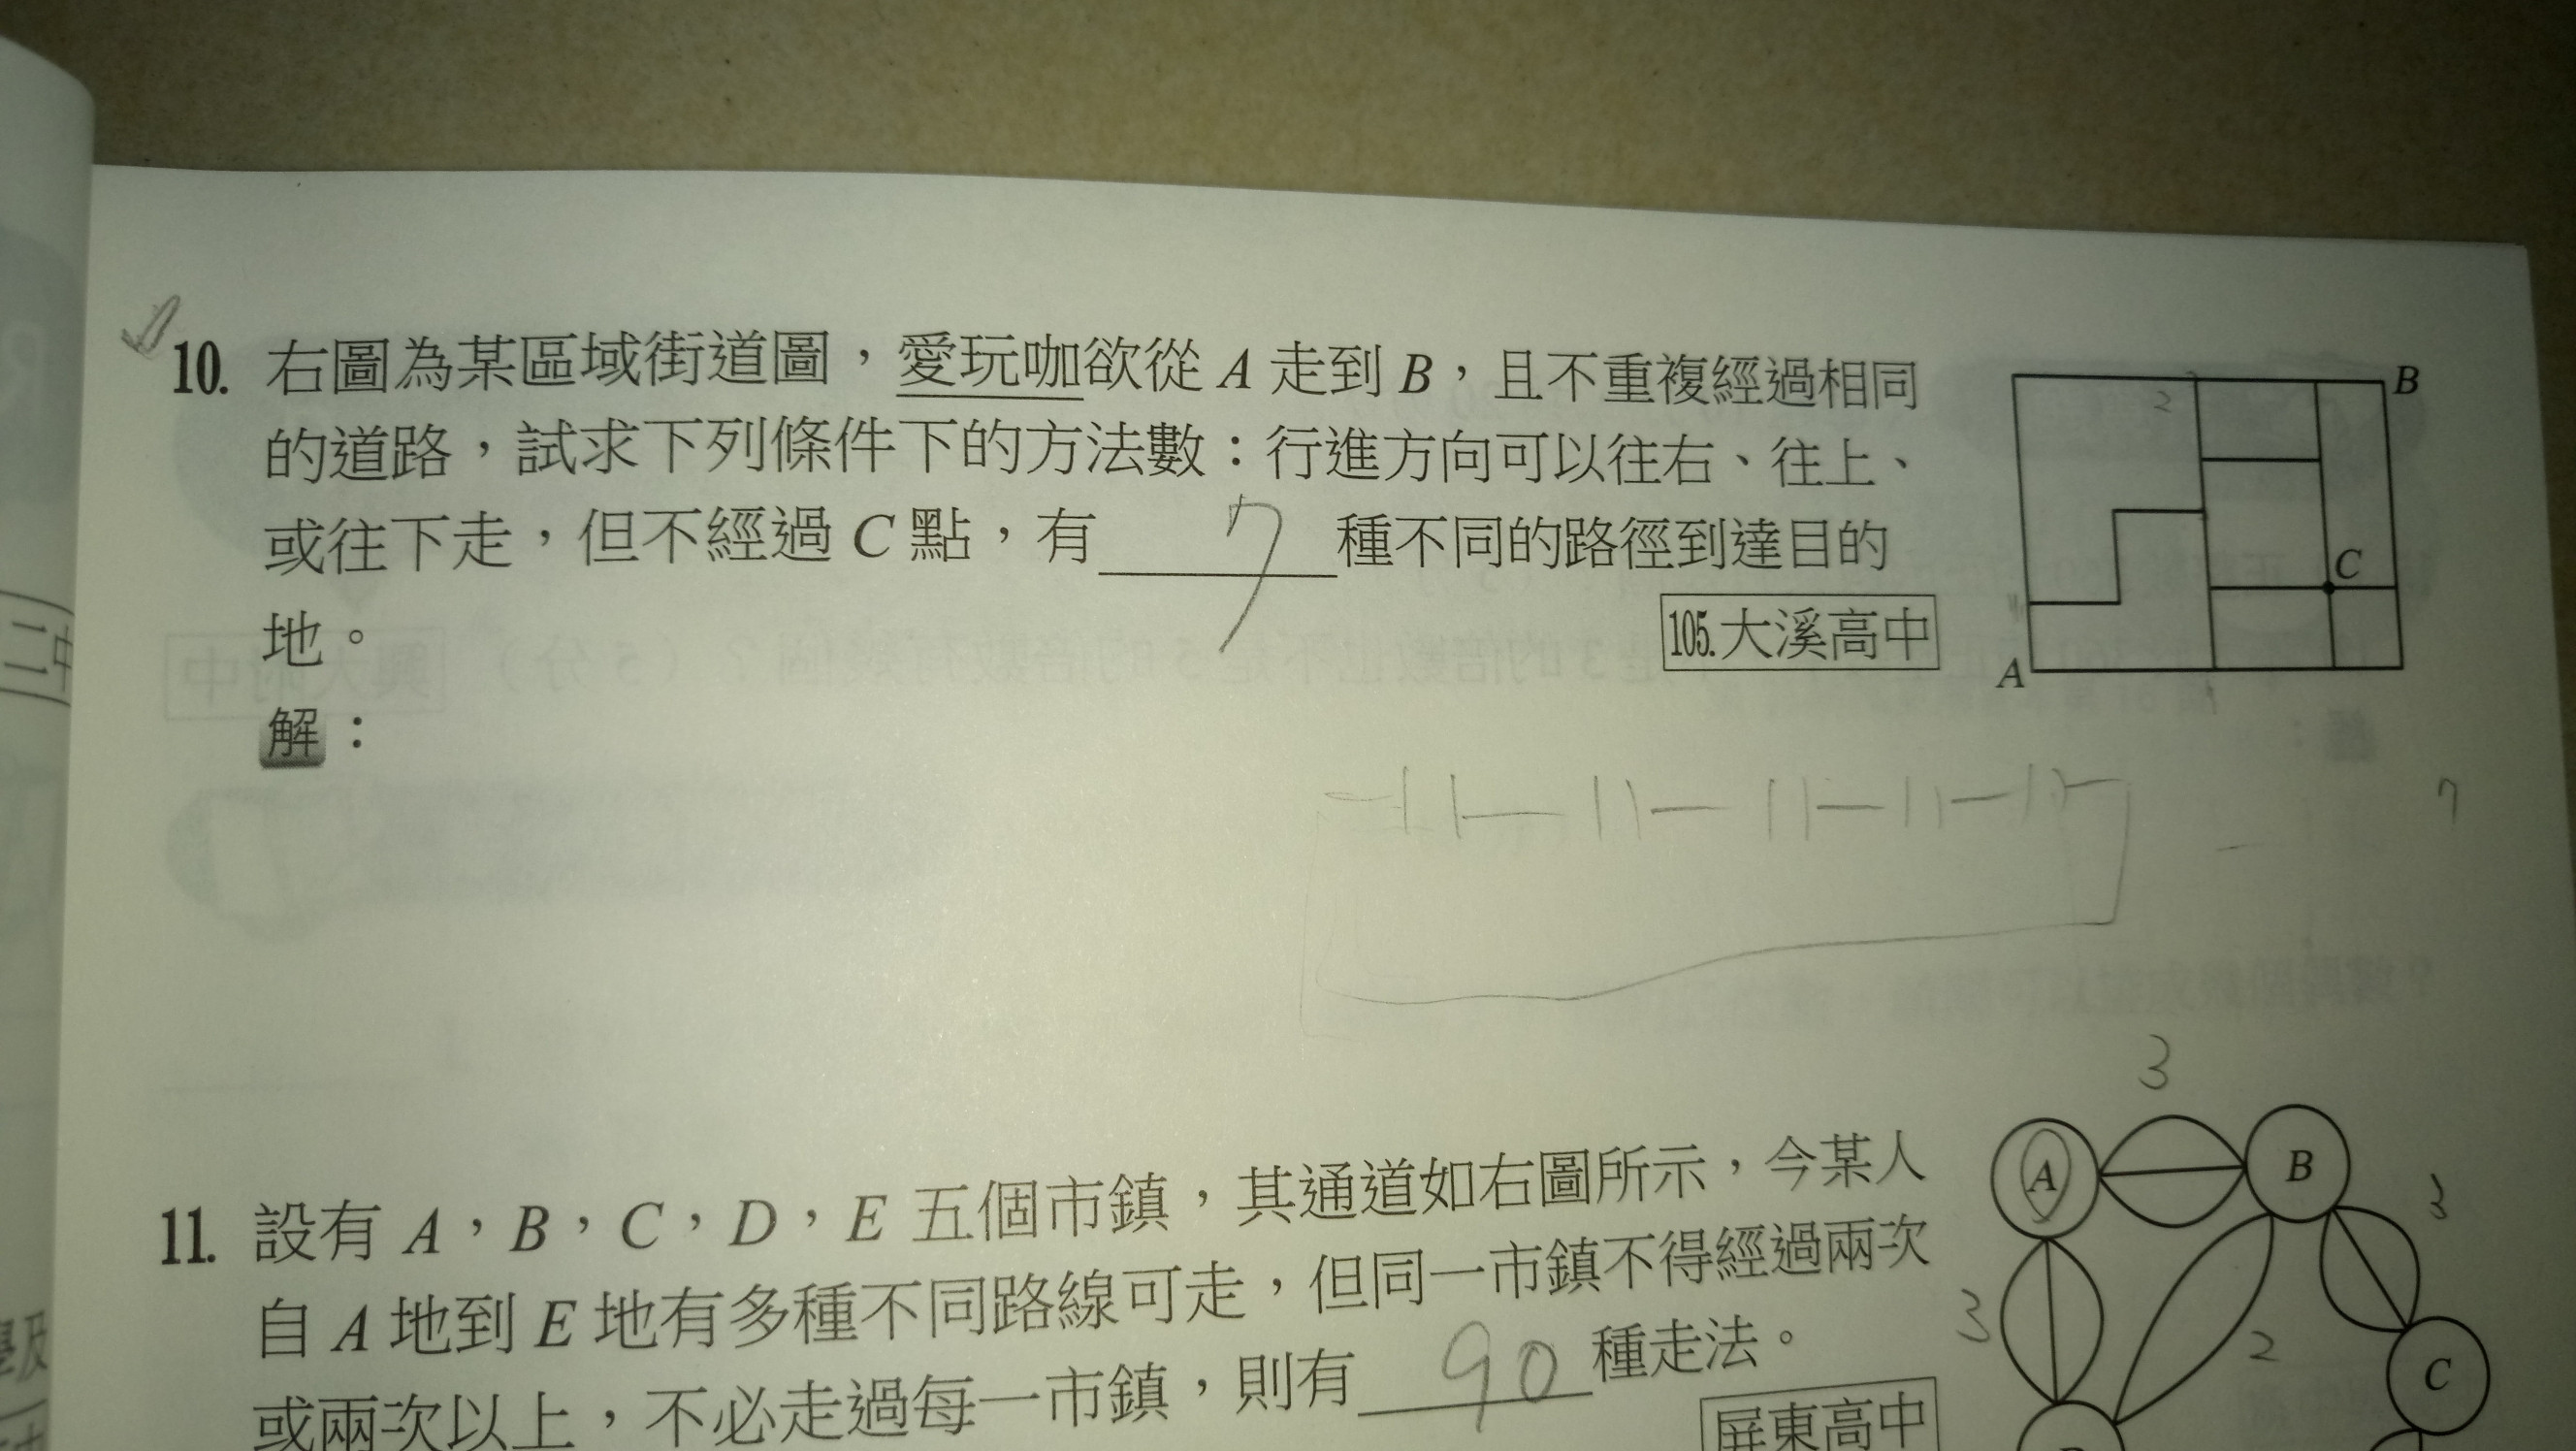 10. 右圖為某區域街道圖，愛玩咖欲從 A 走到 B，且不重複經過相同
的道路，試求下列條件下的方法數：行進方向可以往右、往上、
或往下走，但不經過 C 點，有 7 種不同的路徑到達目的
地。
105.大溪高中
解：
B
2
C
A
7
11. 設有 A，B，C，D，E 五個市鎮，其通道如右圖所示，今某人
自 A 地到 E 地有多種不同路線可走，但同一市鎮不得經過兩次
或兩次以上，不必走過每一市鎮，則有 90 種走法。
屏東高中
3
A
B
3
3
2
C